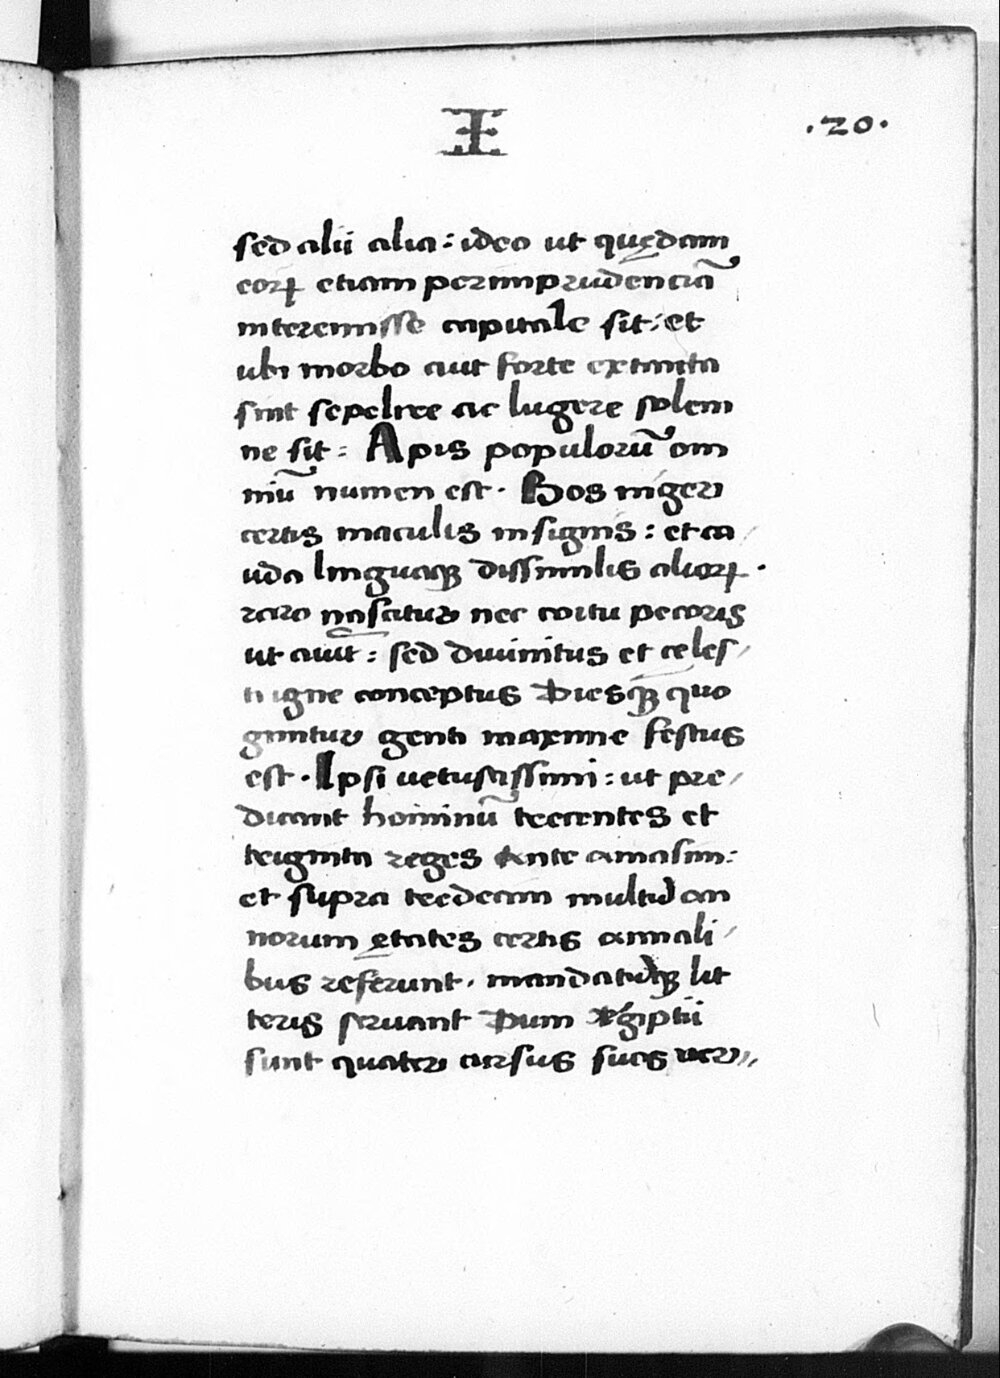 Ǝ E
.20.
sed alii alia : ideo ut quędam
eorꝝ etiam per imprudenciã
interemisse capitale sit : et
ubi morbo aut forte extincta
sint sepelire ac lugere solem
ne sit : Apis populorũ om
niũ numen est . Bos niger
certis maculis insignis : et ca
uda linguaqꝫ dissimilis aliorꝝ .
raro nascitur nec coitu pecoris
ut aiũt : sed diuinitus et celes /
ti igne conceptus Diesqꝫ quo
gignitur genti maxime festus
est . Ipsi uetustissimi : ut pre /
dicant hominũ trecentos et
triginta reges ante amasim :
et supra tredecim multũ an
norum ętates certis annali /
bus referunt . mandatũqꝫ lit
teris seruant Dum Egiptii
sunt quater cursus suos uer //